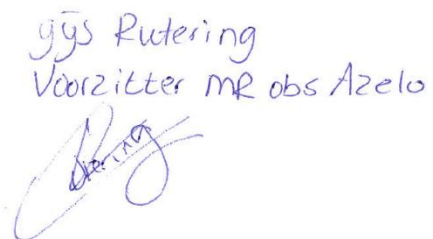 gÿs Rutering
Voorzitter MR obs Azelo